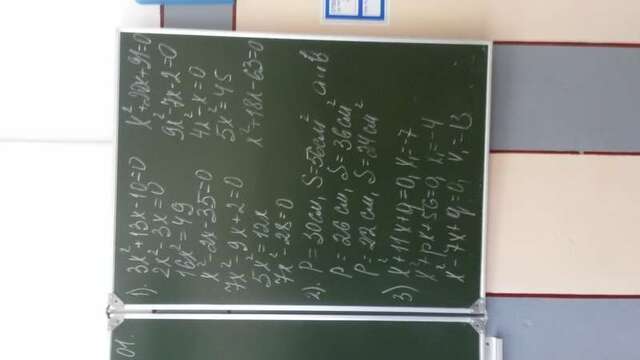 1). 3x²+13x-10=0
2x²-3x=0
16x²=49
x²-2x-35=0
7x²-9x+2=0
5x²=12x
7x²-28=0
x²+20x+91=0
9x²-7x-2=0
4x²-x=0
5x²=45
x²+18x-63=0
2). P=30см, S=56см² a и в
P=26 см, S=36см²
P=22 см, S=24см²
3) x²+11x+q=0, x₁=-7
x²+px+56=0, x₁=-4
x²-7x+q=0, x₁=13
01.